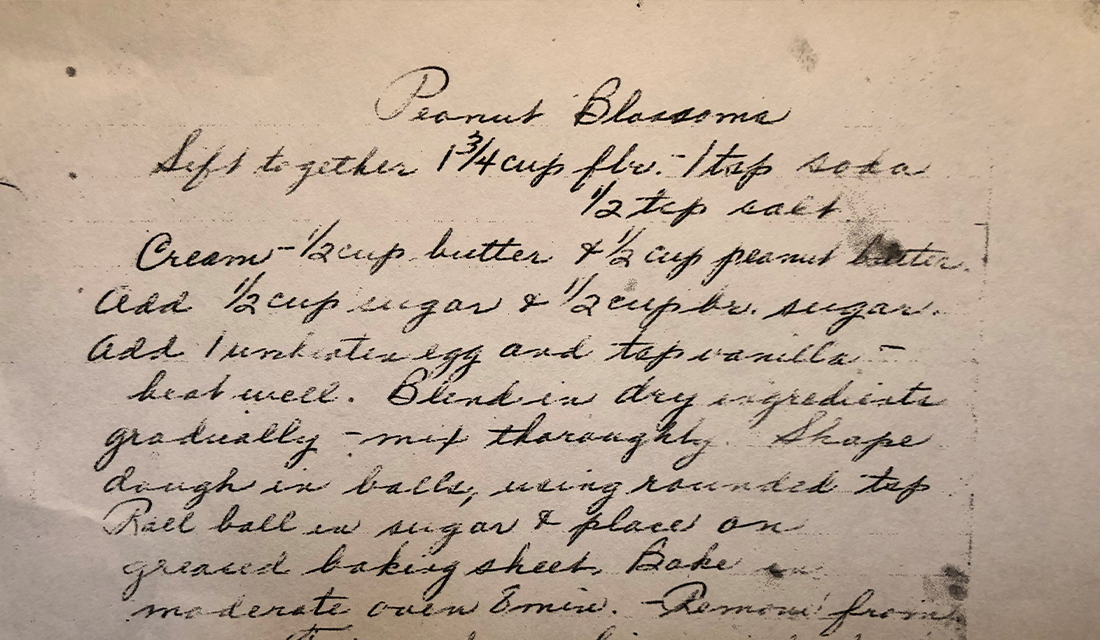 Peanut Blossoms
Sift together 1 3/4 cup flr. - 1 tsp soda
1/2 tsp salt
Cream - 1/2 cup butter & 1/2 cup peanut butter.
Add 1/2 cup sugar & 1/2 cup br. sugar.
Add 1 unbeaten egg and tsp vanilla -
beat well. Blend in dry ingredients
gradually - mix thoroughly. Shape
dough in balls, using rounded tsp
Roll ball in sugar & place on
greased baking sheet. Bake in
moderate oven 8 min. - Remove from